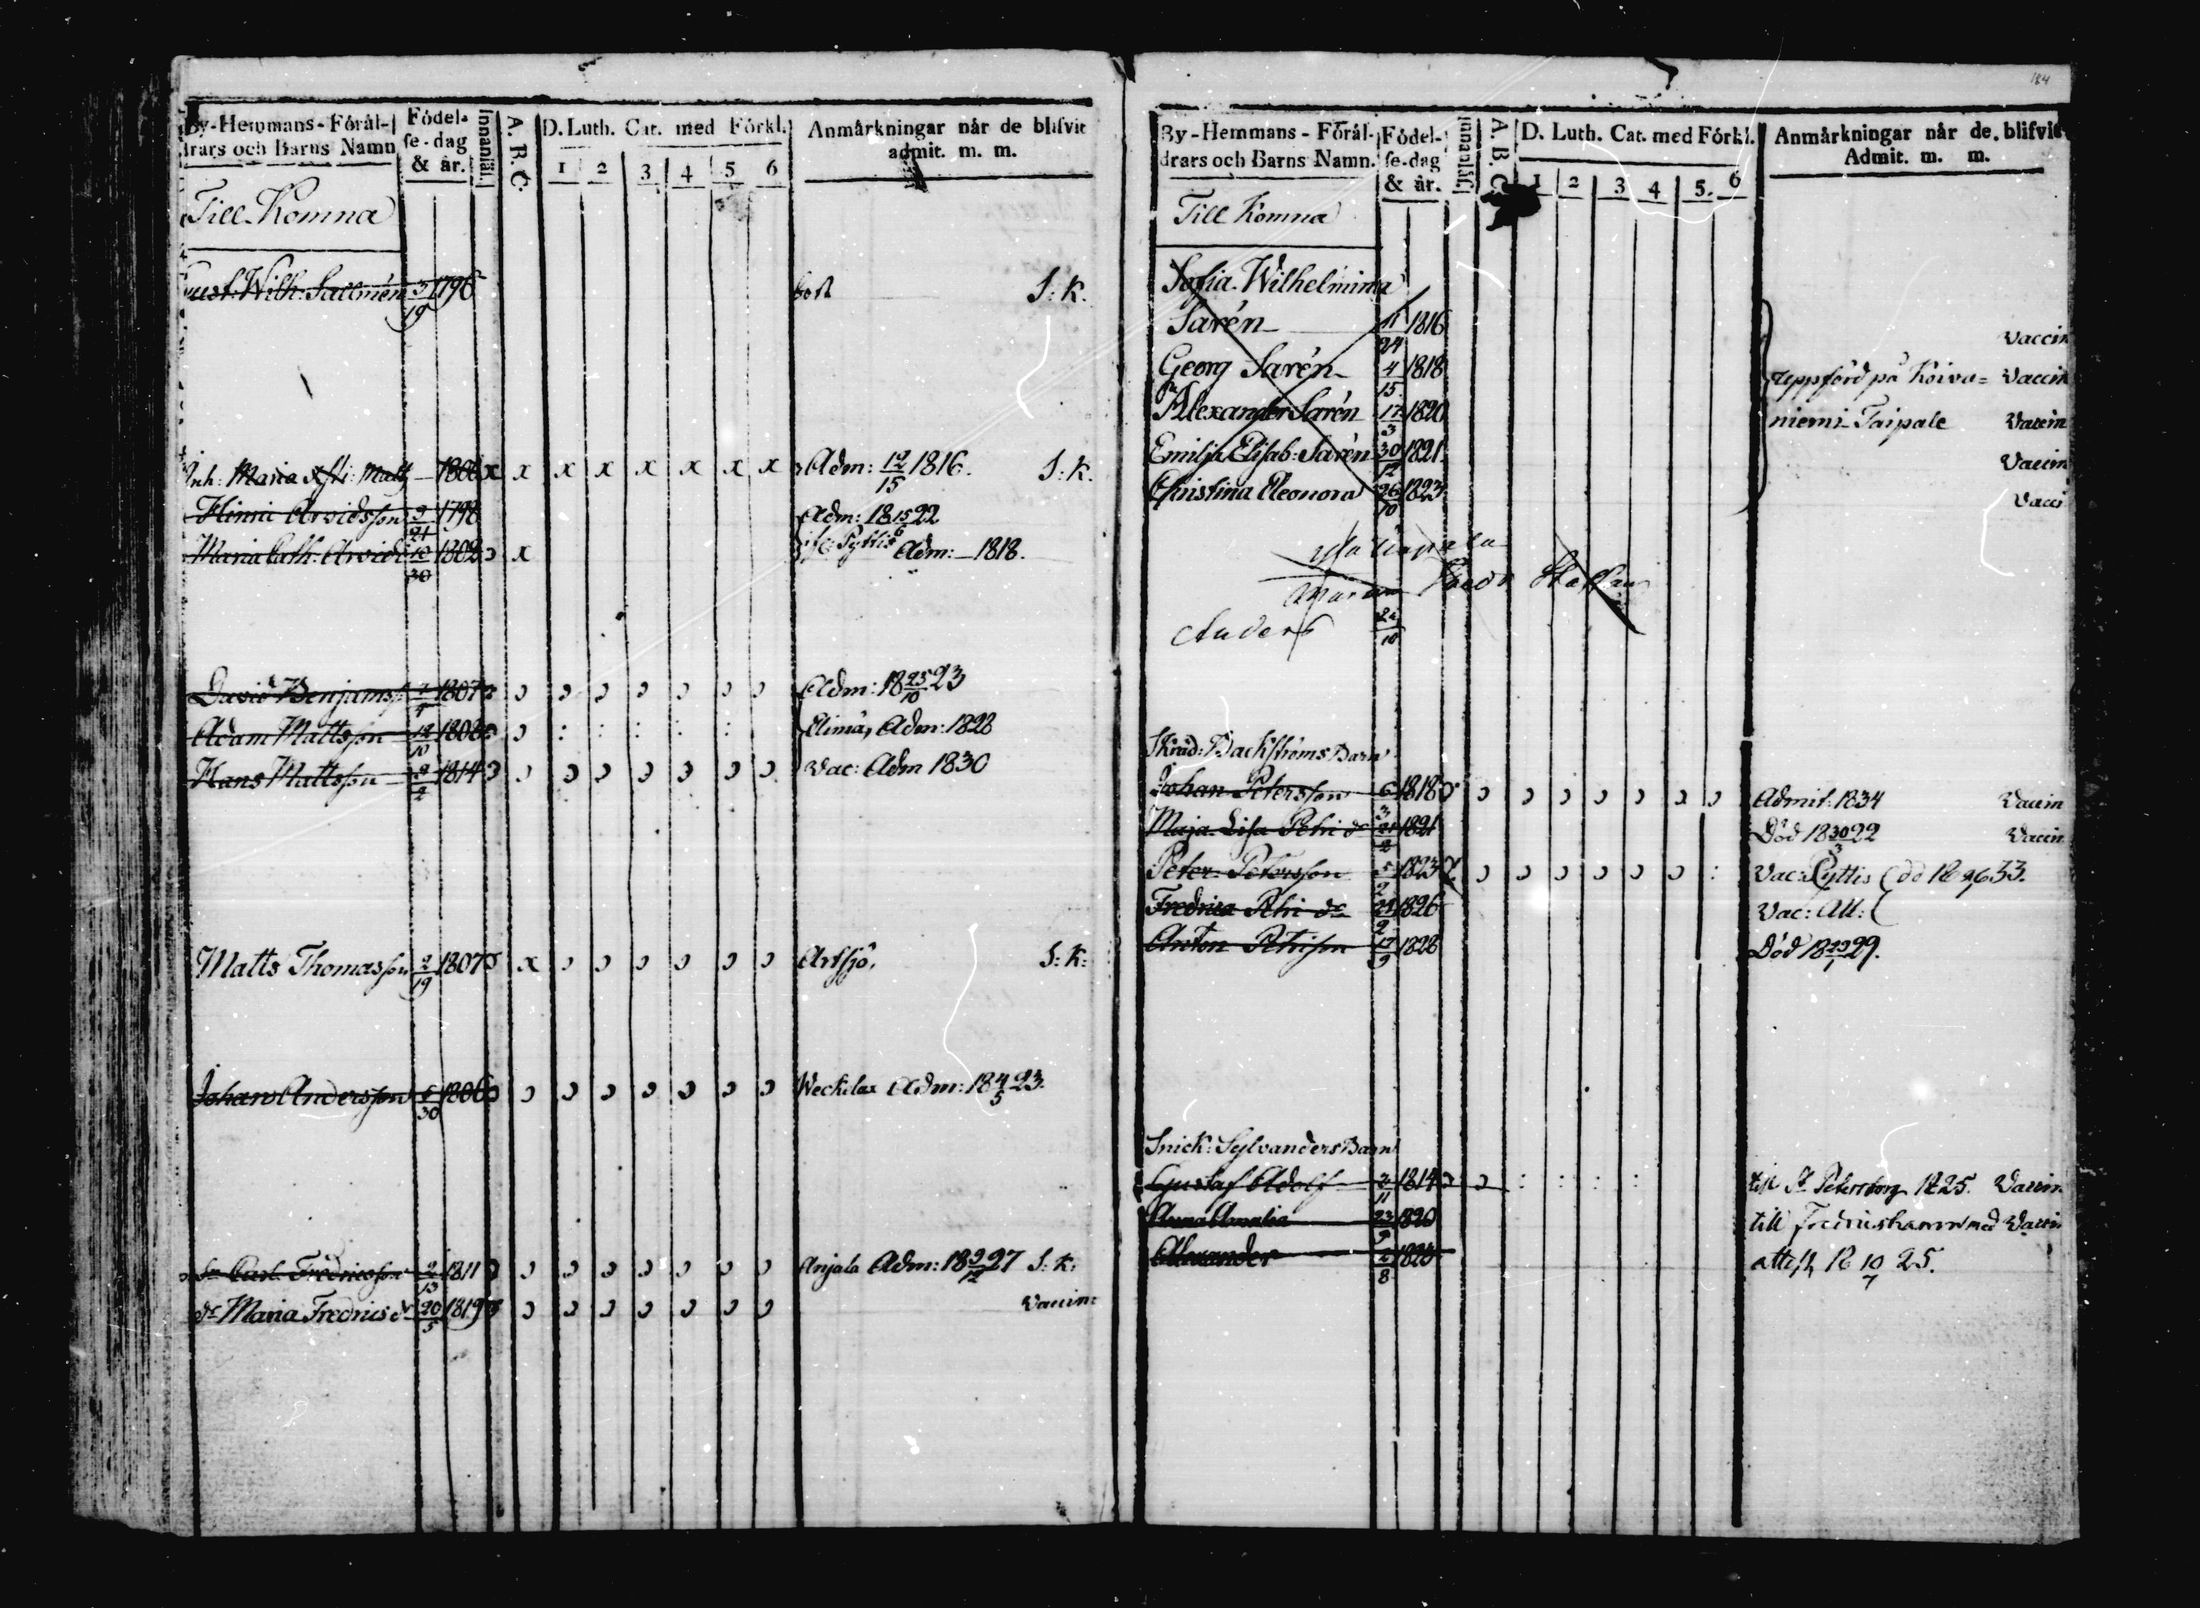 By-Hemmans-Föräl- Födel- Innanläs. A. B. C. D. Luth. Cat. med Förkl. Anmärkningar när de blifvit
drars och Barns Namn se-dag admit. m. m.
& år. 1 2 3 4 5 6
Till Komna
Gust: Wilh: Sallmén 3/19 1796 bort S: K.
Inh: Maria Matts 1800 x x x x x x x x Adm: 12/15 1816. S: K.
Hinric Arvidsson 9/21 1798 Adm: 18 15/6 22
Maria Cath: Arvids 10/30 1802 x Pyttis Adm: 1818.
David Benjamss 1807 Adm: 18 25/10 23
Adam Mattsson 12/10 1808 : : : : : Elimä, Adm: 1828
Hans Mattsson 1814 Vac: Adm 1830
Matts Thomasson 2/19 1807 x Artsjö. S: K:
Johan Andersson /30 1806 Weckelax Adm: 18 4/5 23.
Sn Carl Fredricsson 2/13 1811 Anjala Adm: 18 9/12 27 S: K:
dr Maria Fredrics dr 20/5 1819 Vaccin:
184
By-Hemmans-Föräl- Födel- Innanläs. A. B. C. D. Luth. Cat. med Förkl. Anmärkningar när de blifvit
drars och Barns Namn. se-dag Admit. m. m.
& år. 1 2 3 4 5. 6
Till Komna
Sofia Wilhelmina
Sarén 11/24 1816 Vaccin
Georg Sarén 4/15 1818 uppförd på Koivu= Vaccin
Alexander Sarén 17/3 1820 niemi Taipale Vaccin
Emilia Elisab: Sarén 30/12 1821 Vaccin
Christina Eleonora 26/10 1823 Vacci
Anders 24/10
Skräd: Backströms Barn
Johan Petersson 6/3 1818 Admit: 1834 Vaccin
Maja Lisa Petri dr 21/2 1821 Död 18 30/3 22 Vaccin
Peter Petersson 5/2 1823 : Vac: Pyttis
Fredrica Petri dr 1826 Vac: Att:
Anton Petrisson 17/9 1828 Död 18 23/1 29.
Snick: Sylvanders Barn
Gustaf Adolf 2/11 1814 : : : : till St Petersborg 1825. Vaccin
Anna Amalia 23/9 1820 till Fredrichshamn med Vaccin
Alexander /8 1823 attest 18 10/7 25.